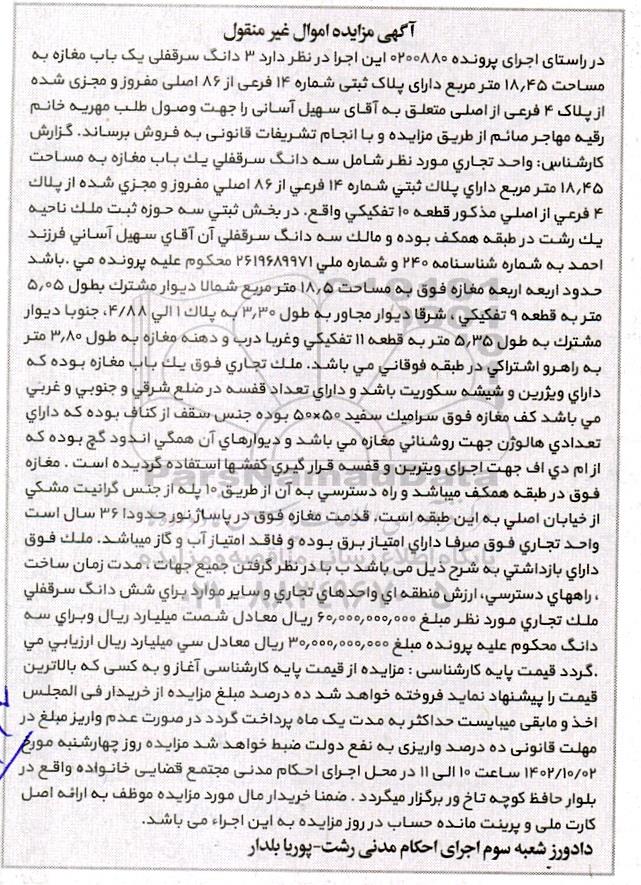 آگهی مزایده اموال غیر منقول
در راستای اجرای پرونده ۰۲۰۰۸۸۰ این اجرا در نظر دارد ۳ دانگ سرقفلی یک باب مغازه به
مساحت ۱۸٫۴۵ متر مربع دارای پلاک ثبتی شماره ۱۴ فرعی از ۸۶ اصلی مفروز و مجزی شده
از پلاک ۴ فرعی از اصلی متعلق به آقای سهیل آسانی را جهت وصول طلب مهریه خانم
رقیه مهاجر صائم از طریق مزایده و با انجام تشریفات قانونی به فروش برساند. گزارش
کارشناس: واحد تجاري مورد نظر شامل سه دانگ سرقفلي یك باب مغازه به مساحت
۱۸٫۴۵ متر مربع داراي پلاك ثبتي شماره ۱۴ فرعي از ۸۶ اصلي مفروز و مجزي شده از پلاك
۴ فرعي از اصلي مذکور قطعه ۱۰ تفکیکي واقع. در بخش ثبتي سه حوزه ثبت ملك ناحیه
یك رشت در طبقه همکف بوده و مالك سه دانگ سرقفلي آن آقاي سهیل آساني فرزند
احمد به شماره شناسنامه ۲۴۰ و شماره ملي ۲۶۱۹۶۸۹۹۷۱ محکوم علیه پرونده مي .باشد
حدود اربعه اربعه مغازه فوق به مساحت ۱۸٫۵ متر مربع شمالا دیوار مشترك بطول ۵٫۰۵
متر به قطعه ۹ تفکیکي ، شرقا دیوار مجاور به طول ۳٫۳۰ به پلاك ۱ الي ۴/۸۸، جنوبا دیوار
مشترك به طول ۵٫۳۵ متر به قطعه ۱۱ تفکیکي وغربا درب و دهنه مغازه به طول ۳٫۸۰ متر
به راهرو اشتراکي در طبقه فوقاني مي باشد. ملك تجاري فوق یك باب مغازه بوده که
داراي ویژرین و شیشه سکوریت باشد و داراي تعداد قفسه در ضلع شرقي و جنوبي و غربي
مي باشد کف مغازه فوق سرامیك سفید ۵۰×۵۰ بوده جنس سقف از کناف بوده که داراي
تعدادي هالوژن جهت روشنائي مغازه مي باشد و دیوارهاي آن همگي اندود گچ بوده که
از ام دي اف جهت اجراي ویترین و قفسه قرار گیري کفشها استفاده گردیده است . مغازه
فوق در طبقه همکف میباشد و راه دسترسي به آن از طریق ۱۰ پله از جنس گرانیت مشکي
از خیابان اصلي به این طبقه است. قدمت مغازه فوق در پاساژ نور حدودا ۳۶ سال است
واحد تجاري فوق صرفا داراي امتیاز برق بوده و فاقد امتیاز آب و گاز میباشد. ملك فوق
داراي بازداشتي به شرح ذیل می باشد ب با در نظر گرفتن جمیع جهات ، مدت زمان ساخت
، راههاي دسترسي، ارزش منطقه اي واحدهاي تجاري و سایر موارد براي شش دانگ سرقفلي
ملك تجاري مورد نظر مبلغ ۶۰,۰۰۰,۰۰۰,۰۰۰ ریال معادل شصت میلیارد ریال وبراي سه
دانگ محکوم علیه پرونده مبلغ ۳۰,۰۰۰,۰۰۰,۰۰۰ ریال معادل سي میلیارد ریال ارزیابي مي
.گردد قیمت پایه کارشناسی : مزایده از قیمت پایه کارشناسی آغاز و به کسی که بالاترین
قیمت را پیشنهاد نماید فروخته خواهد شد ده درصد مبلغ مزایده از خریدار فی المجلس
اخذ و مابقی میبایست حداکثر به مدت یک ماه پرداخت گردد در صورت عدم واریز مبلغ در
مهلت قانونی ده درصد واریزی به نفع دولت ضبط خواهد شد مزایده روز چهارشنبه مورخ
۱۴۰۲/۱۰/۰۲ ساعت ۱۰ الی ۱۱ در محل اجرای احکام مدنی مجتمع قضایی خانواده واقع در
بلوار حافظ کوچه تاخ ور برگزار میگردد . ضمنا خریدار مال مورد مزایده موظف به ارائه اصل
کارت ملی و پرینت مانده حساب در روز مزایده به این اجراء می باشد.
دادورز شعبه سوم اجرای احکام مدنی رشت-پوریا بلدار